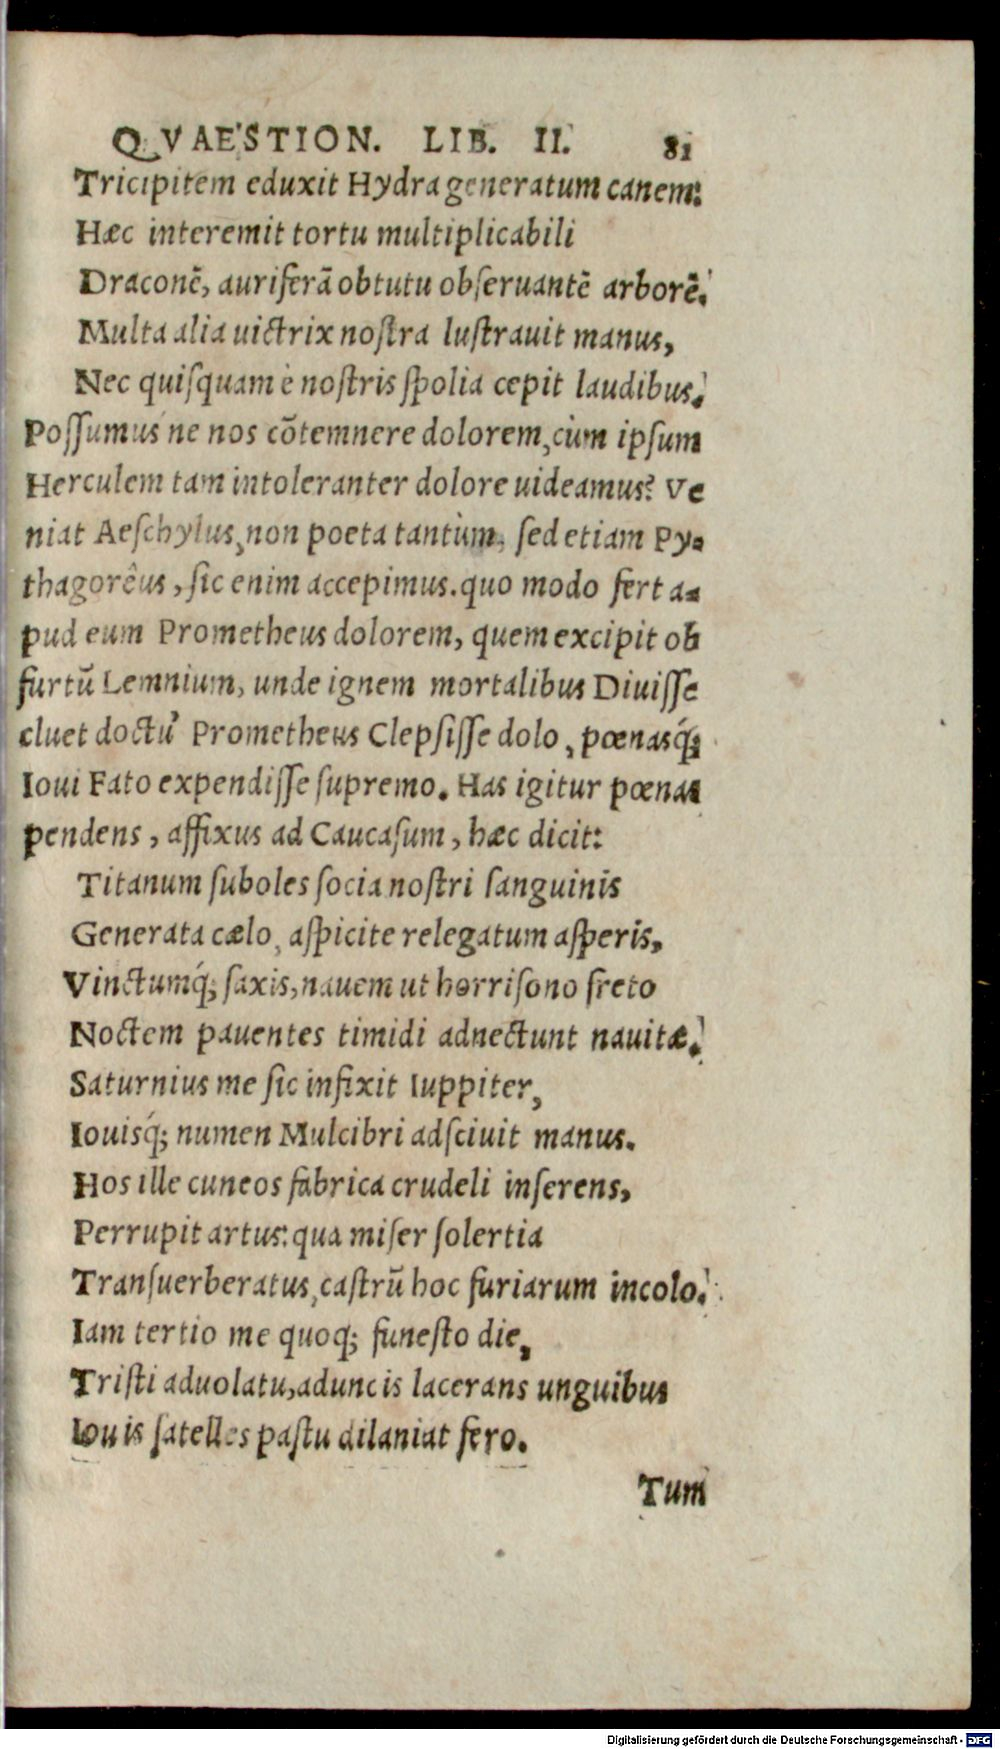 QVAESTION. LIB. II. 81
Tricipitem eduxit Hydra generatum canem:
Hæc interemit tortu multiplicabili
Draconē, auriferā obtutu obſeruantē arborē.
Multa alia uictrix noſtra luſtrauit manus,
Nec quiſquam è noſtris ſpolia cepit laudibus.
Poſſumus ne nos cōtemnere dolorem, cùm ipſum
Herculem tam intoleranter dolore uideamus? Ve
niat Aeſchylus, non poeta tantùm, ſed etiam Py-
thagorêus, ſic enim accepimus. quo modo fert a-
pud eum Prometheus dolorem, quem excipit ob
furtū Lemnium, unde ignem mortalibus Diuiſſe
cluet doctu' Prometheus Clepſiſſe dolo, pœnasq́;
Ioui Fato expendiſſe ſupremo. Has igitur pœnas
pendens, affixus ad Caucaſum, hæc dicit:
Titanum ſuboles ſocia noſtri ſanguinis
Generata cælo, aſpicite relegatum aſperis,
Vinctumq́; ſaxis, nauem ut horriſono freto
Noctem pauentes timidi adnectunt nauitæ.
Saturnius me ſic infixit Iuppiter,
Iouisq́; numen Mulcibri adſciuit manus.
Hos ille cuneos fabrica crudeli inſerens,
Perrupit artus: qua miſer ſolertia
Tranſuerberatus, caſtrū hoc furiarum incolo.
Iam tertio me quoq; funeſto die,
Triſti aduolatu, aduncis lacerans unguibus
Iouis ſatelles paſtu dilaniat fero.
Tum
Digitalisierung gefördert durch die Deutsche Forschungsgemeinschaft - DFG